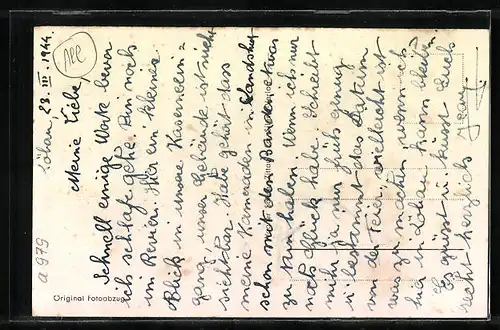 Löbau, 23. III. 1944.
Meine Liebe,
Schnell einige Worte bevor
ich schlafe gehe. Bin noch
im Revier. Hier ein kleiner
Blick in unsere Kasernen =
gang, unser Gebäude ist nicht
sichtbar. Habe gehört dass
meine Kameraden in Landshut
schon mit den Banden etwas
zu tun haben. Wenn ich nur
noch Glück habe. Schreibt
mir ja nur früh genug
u. bestimmt das Datum
von der Feier, vielleicht ist
was zu machen, wenn ich
hier in Löbau kann bleiben.
Es grüsst u. küsst Euch
recht herzlich
Jean.
a 979
Original Fotoabzug